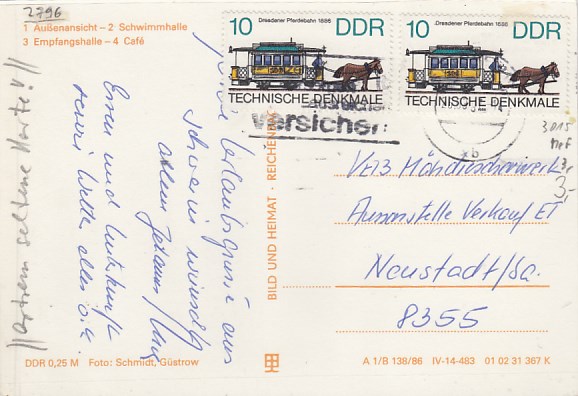 2796
1 Außenansicht – 2 Schwimmhalle
3 Empfangshalle – 4 Café
Dresdener Pferdebahn 1886
10 DDR
TECHNISCHE DENKMALE
Dresdener Pferdebahn 1886
10 DDR
TECHNISCHE DENKMALE
versichert
3015
MeF
3,-
Urlaubsgrüße aus
Schwerin wünscht
allem
Essen und Unterkunft
Wetter alles o.k.
//extrem seltene Karte!//
BILD UND HEIMAT · REICHENBACH
VEB Mähdrescherwerk
Aussenstelle Verkauf ET
Neustadt/Sa.
8355
DDR 0,25 M Foto: Schmidt, Güstrow
A 1/B 138/86 IV-14-483 01 02 31 367 K